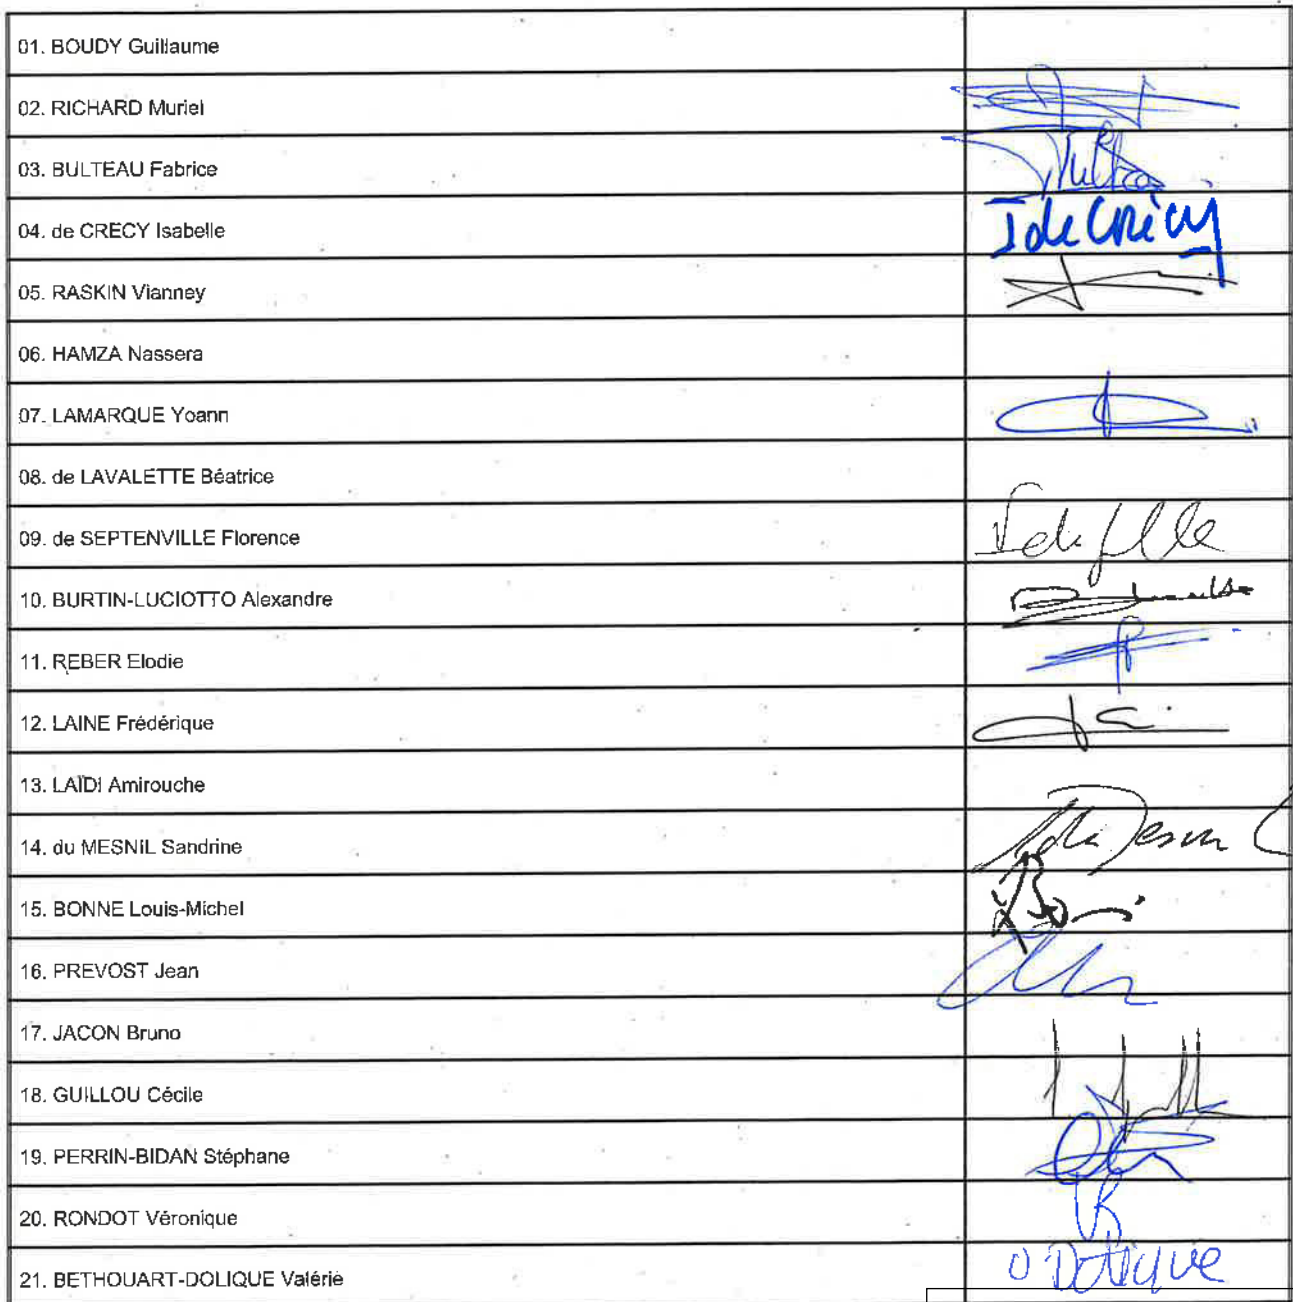 01. BOUDY Guillaume
02. RICHARD Muriel
03. BULTEAU Fabrice
04. de CRECY Isabelle
I de Crécy
05. RASKIN Vianney
06. HAMZA Nassera
07. LAMARQUE Yoann
08. de LAVALETTE Béatrice
09. de SEPTENVILLE Florence
10. BURTIN-LUCIOTTO Alexandre
11. REBER Elodie
12. LAINE Frédérique
13. LAÏDI Amirouche
14. du MESNIL Sandrine
15. BONNE Louis-Michel
16. PREVOST Jean
17. JACON Bruno
18. GUILLOU Cécile
19. PERRIN-BIDAN Stéphane
20. RONDOT Véronique
21. BETHOUART-DOLIQUE Valérie
Dolique